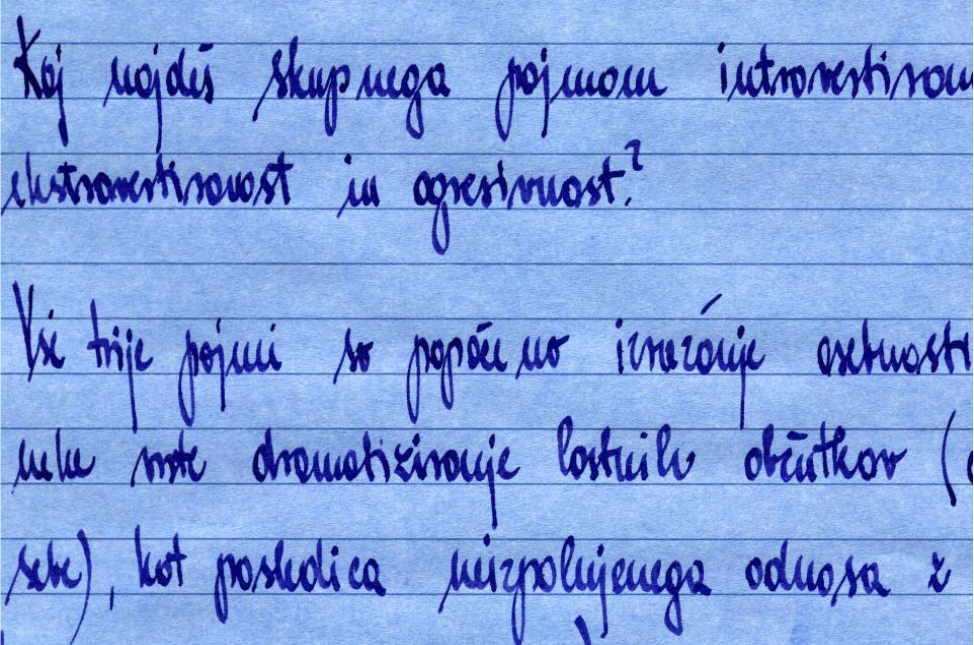 Kaj najdeš skupnega pojmom introvertiran
ekstravertiranost in agresivnost?
Vsi trije pojmi so popačeno izražanje osebnosti
neke vrste dramatiziranje lastnih občutkov (
sebe), kot posledica neizpolnjenega odnosa z